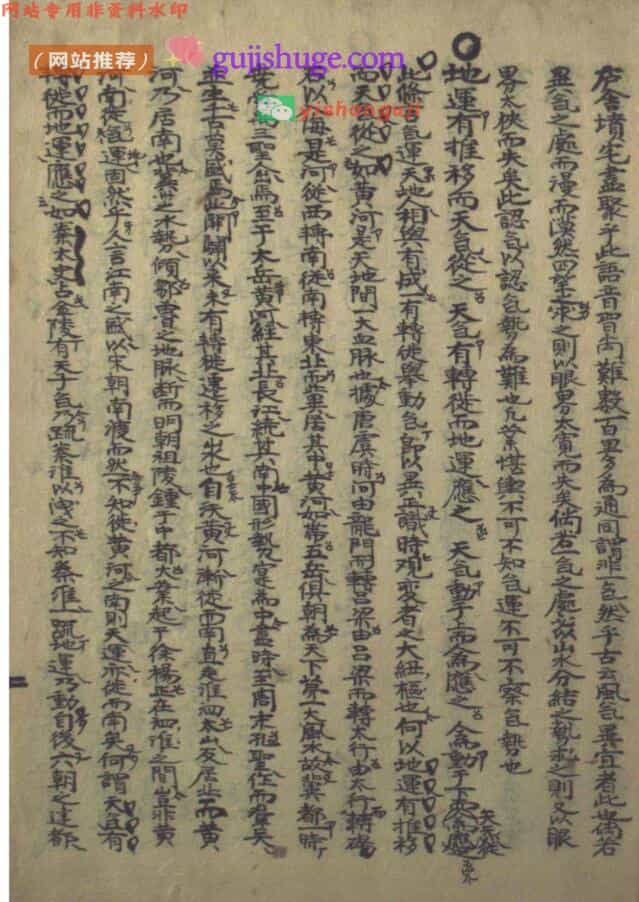 网站专用非资料水印
(网站推荐)
gujishuge.com
yishanguji
庐舍墳宅盡聚于此語音習尚難数百里多為通同謂非一氣然乎古云風氣異宜者此也倘若
異氣之處而漫而漠然四望求之則以眼界太寬而失矣倘若一氣之處故山水分結之執求之則又以眼
界太狹而失矣此認氣以認氣勢為難也凡業堪輿不可不知氣運不可不察氣勢也
地運有推移而天氣從之天氣有轉徙而地運應之天氣動于而應之動于下而應
此條氣運天地人相與有成一有轉徙舉動氣即以異正識時观变者之大紐樞也何以地運有推移
而天氣從之如黃河是天地間一大血脉也據唐虞時河由龍門而轉吕梁由吕梁而轉太行由太行轉碣
石以海是河從西轉南從南轉東北而冀居其中黃河如帶五岳俱朝為天下第一大風水故冀都一時
三聖出焉至于木岳黃河經其北長江統其南中國形勢定為中盡時至周末孔聖作而
生千古莫盛焉此開闢以來未有轉徙運移之出也自黃河漸徙西南直走淮泗太山反居北而黃
河乃居南也冀北水勢傾鄒魯之地脉断而明朝祖陵鍾于中都大業起于徐楊正在泗淮之間豈非黃
河南徙氣運固然乎人言江南之盛以宋朝南渡而然不知徙黃河之南則天運亦徙而南矣何謂天氣有
轉徙而地運應之如秦太史占金陵有天子氣乃疏秦淮以洩之不知秦淮一疏地運乃動自後六朝之建都